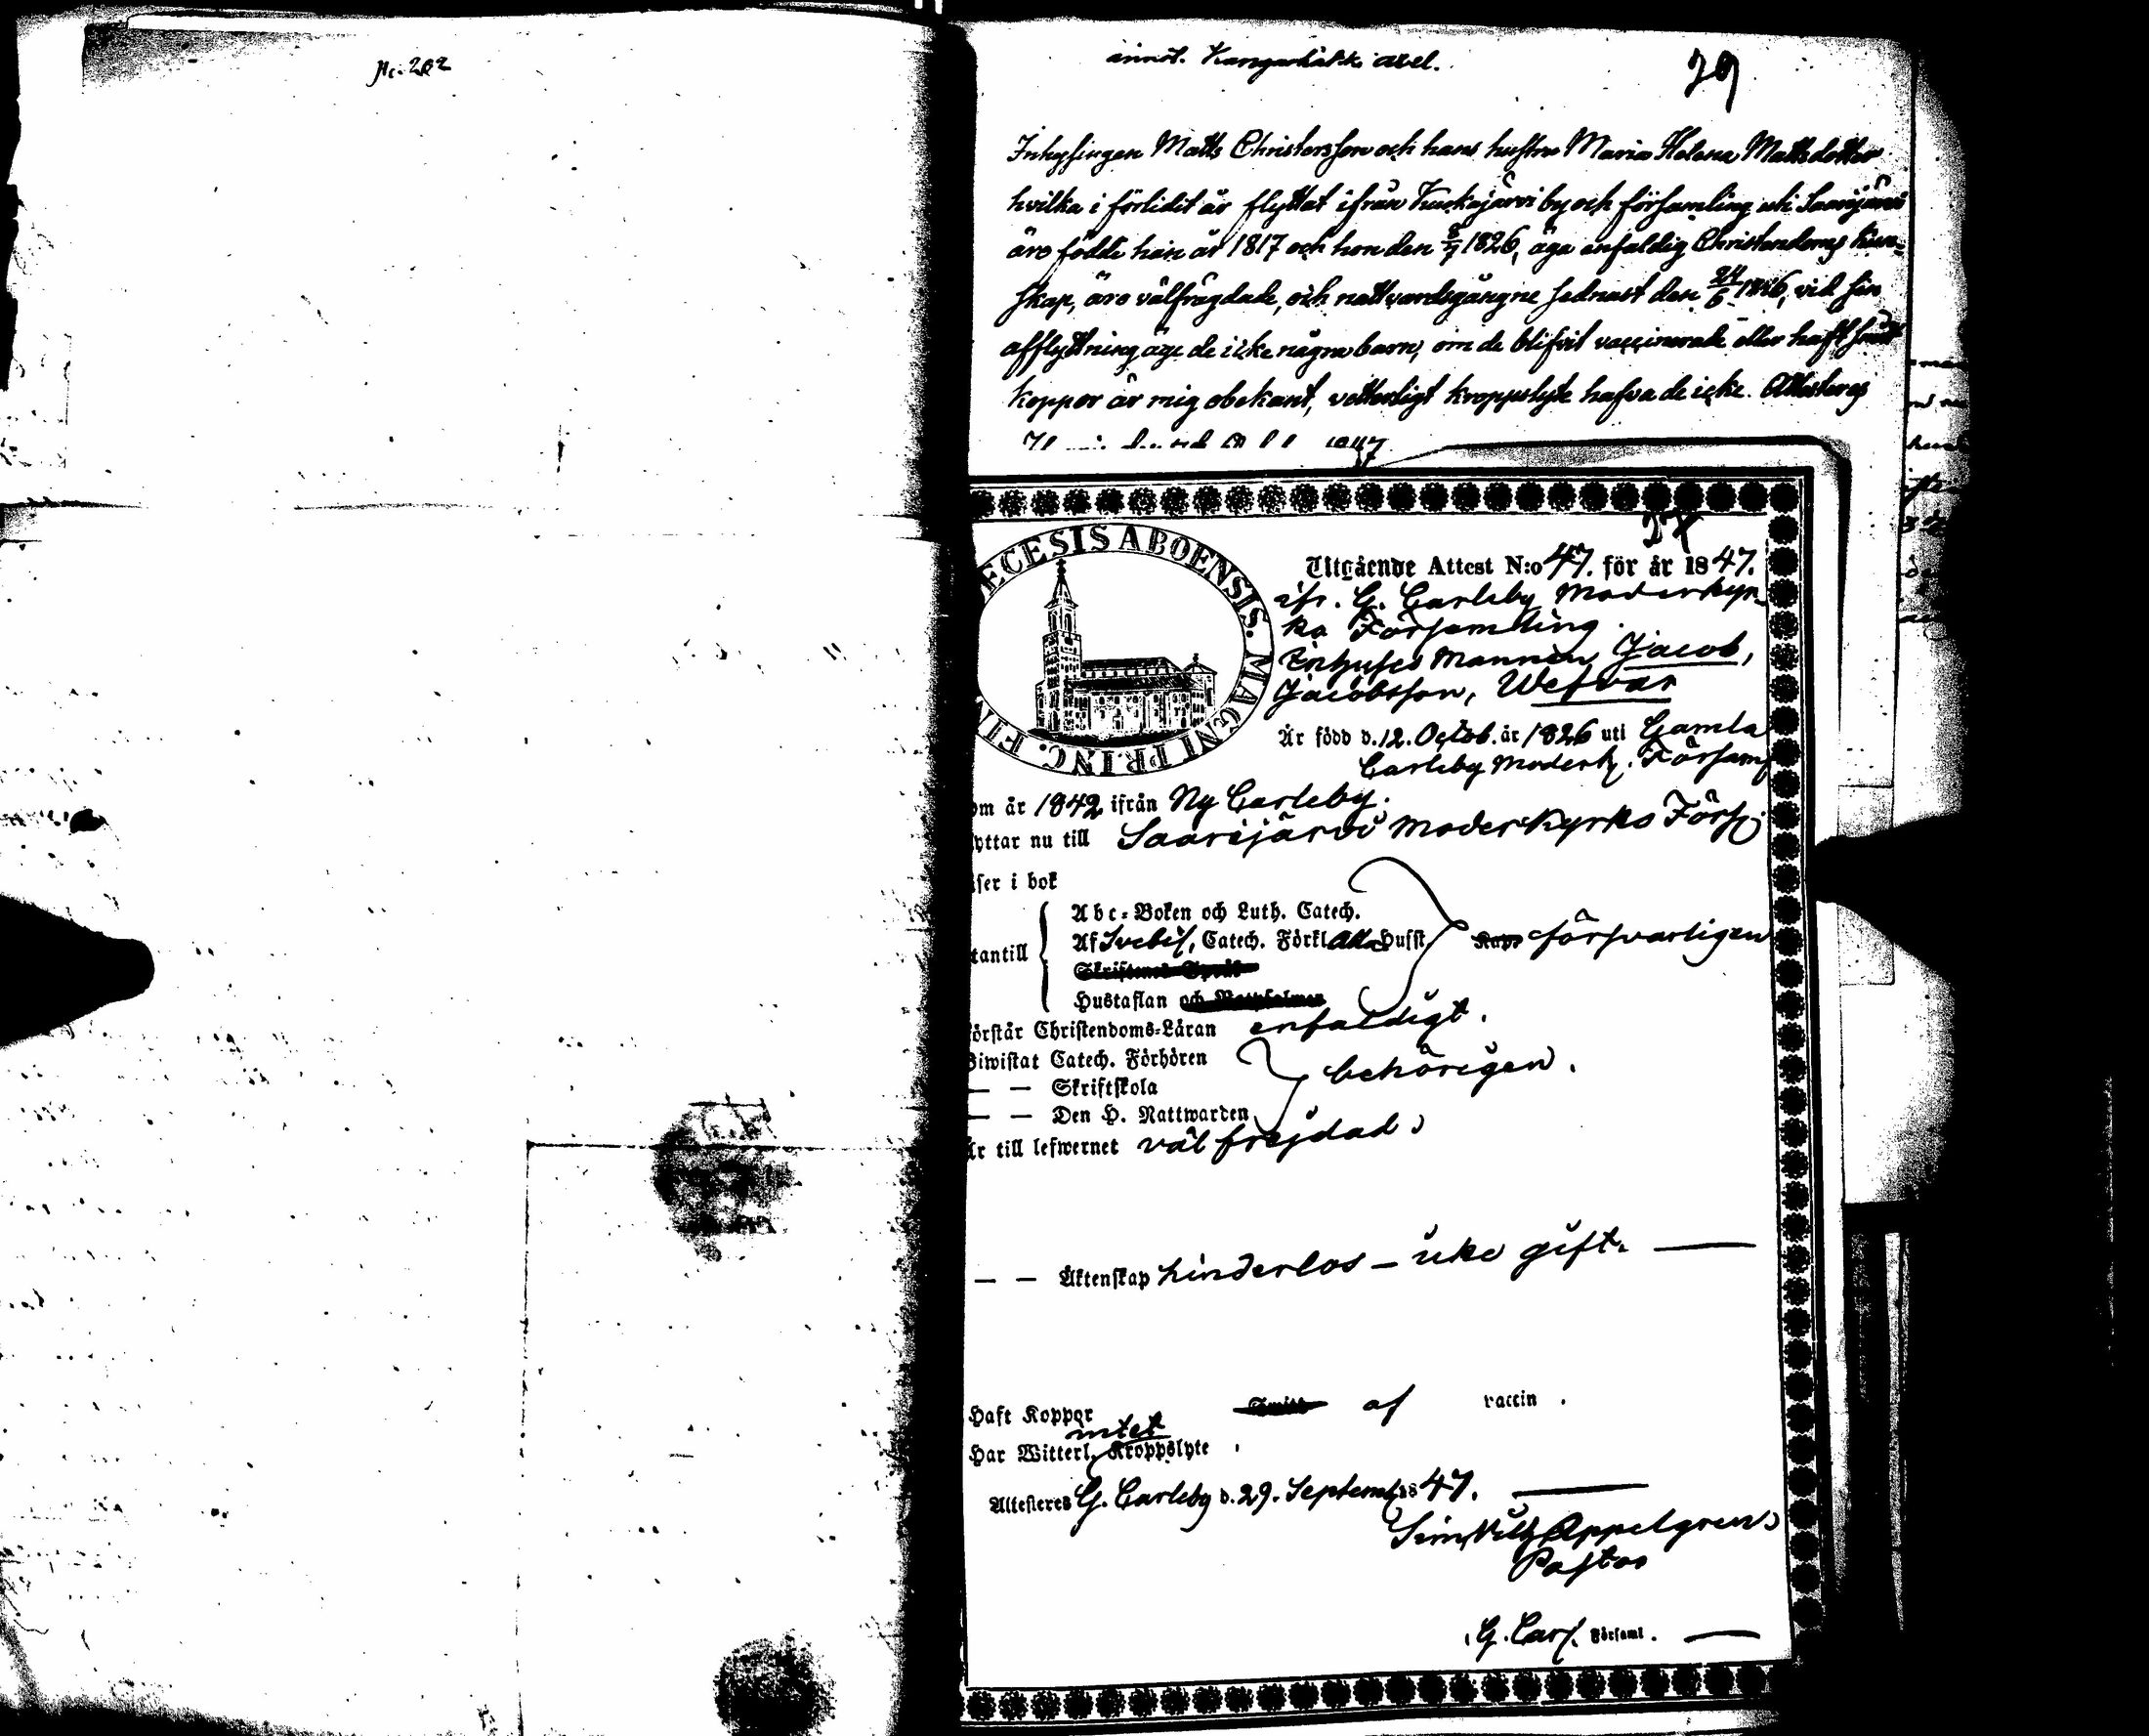 No. 202
annot. Kangashäkki axel.
29
Inhysingen Matts Christersson och hans hustru Maria Helena Mattsdotter
hvilka i förlidit år flyttat ifrån by och församling uti Saarijärvi
äro födde han år 1817 och hon den 8/7 1826, äga enfaldig Christendoms kun-
skap, äro välfrägdade, och nattvardsgångne sednast den 24/6 1846, vid sin
afflyttning äge de icke några barn, om de blifvit vaccinerade eller haft
koppor är mig obekant, vetterligt kroppslyte hafva de icke. Attesteras
1847
ECESIS ABOENSIS. MAGNI PRINC. FIN
Utgående Attest N:o 47. för år 1847.
ifr. G. Carleby Moderkyr-
ko Församling.
Inhyses Mannen Jacob,
Jacobsson, Wefvar
Är född d. 12. Octob. år 1826 uti Gamla
Carleby Moderk. Församl
om år 1842 ifrån Ny Carleby.
yttar nu till Saarijärvi Moderkyrko Förs.
äser i bok
Abc-Boken och Luth. Catech.
tantill Af Svebil. Catech. Förkl. Alla Husst. försvarligen
Skriftenes Språk
Hustaflan och
örstår Christendoms-Läran enfaldigt.
Biwistat Catech. Förhören
— — Skriftskola behörigen.
— — Den H. Nattwarden
Är till lefwernet väl frejdad.
— — Äktenskap hinderlös – icke gift. —
Haft Koppor af vaccin.
intet
Har Witterl. Kroppslyte.
Attesteras G. Carleby d. 29. Septemb. 1847. —
Sim. Vilh. Appelgren.
Pastor
G. Carl. Församl. —